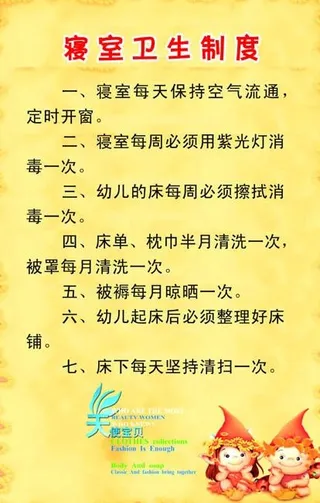 寝室卫生制度
一、寝室每天保持空气流通，
定时开窗。
二、寝室每周必须用紫光灯消
毒一次。
三、幼儿的床每周必须擦拭消
毒一次。
四、床单、枕巾半月清洗一次，
被罩每月清洗一次。
五、被褥每月晾晒一次。
六、幼儿起床后必须整理好床
铺。
七、床下每天坚持清扫一次。
天使宝贝
BEAUTY WOMEN
CLOTHES collections
Fashion Is Enough
Body And soup
Classic And Fashion bring together